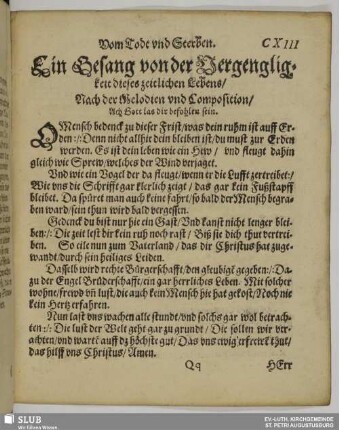 Vom Todt vnd Sterben. CXIII
Ein Gesang von der Vergenglig-
keit dieses zeitlichen Lebens/
Nach der Melodien vnd Composition/
Ach Gott las dir befohlen sein.
O Mensch bedenck zu dieser Frist/ was dein ruhm ist auff Er-
den :/: Denn nicht allhie dein bleiben ist/ du must zur Erden
werden. Es ist dein leben wie ein Hew/ vnd fleugt dahin
gleich wie Sprew/ welches der Wind verjaget.
Vnd wie ein Vogel der da fleugt/ wenn er die Lufft zertreibet:/:
Wie vns die Schrifft gar klerlich zeigt/ das gar kein Fußstapff
bleibet. Da spüret man auch keine fahrt/ so bald der Mensch begra-
ben ward/ sein thun wird bald vergessen.
Gedenck du bist nur hie ein Gast/ Vnd kanst nicht lenger blei-
ben:/: Die zeit lest dir kein ruh noch rast/ Biß sie dich thut vertrei-
ben. So eile nun zum Vaterland/ das dir Christus hat zuge-
wandt/ durch sein heiliges Leiden.
Dasselb wird rechte Bürgerschafft/ den gleubigē gegeben:/: Da-
zu der Engel Brüderschafft/ ein gar herrlichs Leben. Mit solcher
wohne/ frewd vñ lust/ die auch kein Mensch hie hat gekost/ Noch nie
kein Hertz erfahren.
Nun last vns wachen alle stundt/ vnd solchs gar wol betrach-
ten:/: Die lust der Welt geht gar zu grundt/ Die sollen wir vor-
achten/ vnd wartē auff dz höchste gut/ Das vns ewig erfrewē thut/
das hilff vns Christus/ Amen.
Qq HErr
SLUB
Wir führen Wissen.
EV.-LUTH. KIRCHGEMEINDE
ST. PETRI AUGUSTUSBURG